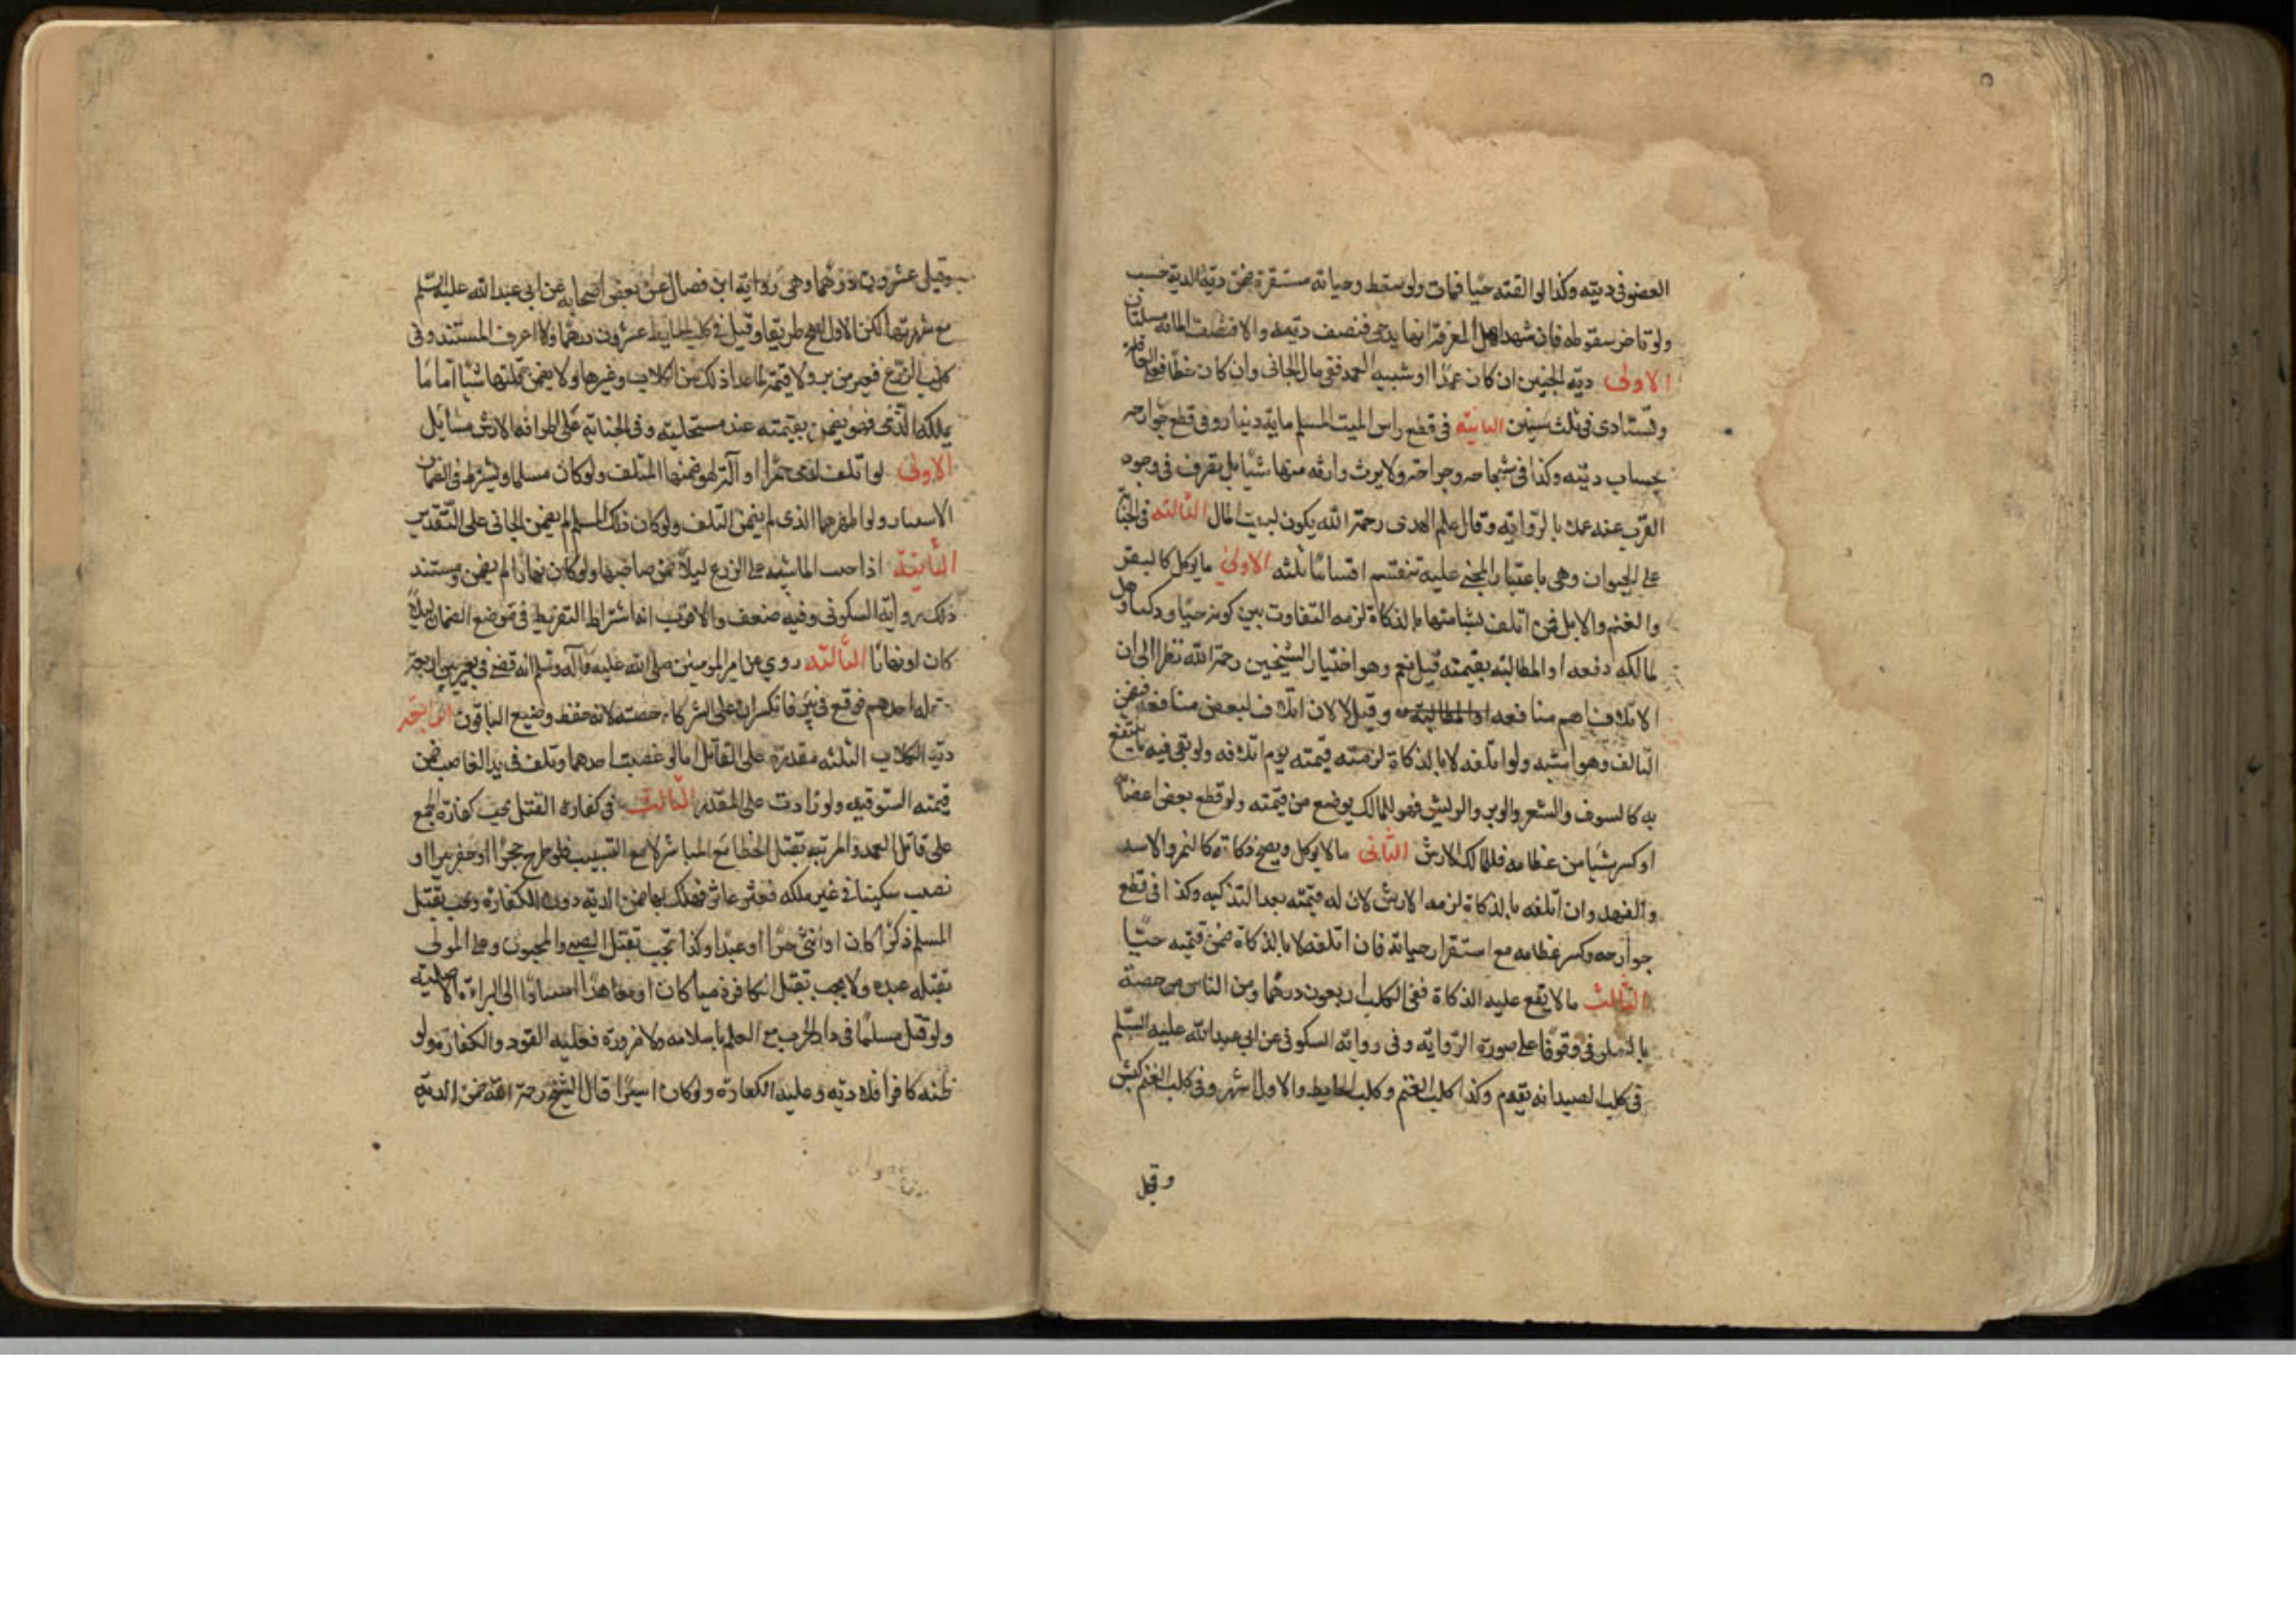 العضو في ديته وكذا لو القته حيا فمات ولو سقط وحياته مستقرة ضمن دية الدية حسب
ولو تاخر سقوطه فان شهد اهل المعرفة انها يد حي فنصف ديته والا فنصف المائة مسئلتان
الاولى دية الجنين ان كان عمدا او شبيه العمد ففي مال الجاني وان كان خطأ فعلى العاقلة
وتستادى في ثلث سنين الثانية في قطع راس الميت المسلم ماية دينار وفي قطع جوارحه
بحساب ديته وكذا في شجاجه وجراحه ولا يرث وارثه منها شيئا بل يصرف في وجوه
القرب عنه عملا بالرواية وقال علم الهدى رحمة الله يكون لبيت المال الثالثة في الجناية
على الحيوان وهي باعتبار المجني عليه تنقسم اقساما ثلثه الاولى ما يؤكل كالبقر
والغنم والابل فمن اتلف شيئا منها بالذكاة لزمه التفاوت بين كونه حيا وذكيا وهل
لمالكه دفعه او المطالبة بقيمته قيل نعم وهو اختيار الشيخين رحمة الله نظرا الى ان
الاتلاف اهم منافعه وقيل لا لان اتلاف لبعض منافعه فيضمن
التالف وهو اشبه ولو اتلفه لا بالذكاة لزمته قيمته يوم اتلافه ولو بقي فيه ما ينتفع
به كالصوف والشعر والوبر والريش فهو للمالك يوضع من قيمته ولو قطع بعض اعضائه
او كسر شيئا من عظامه فللمالك الارش الثاني ما لا يؤكل ويصح ذكاته كالنمر والاسد
والفهد وان اتلفه بالذكاة لزمه الارش لان له قيمته بعد التذكيه وكذا في قطع
جوارحه وكسر عظامه مع استقرار حياته فان اتلفه لا بالذكاة ضمن قيمته حيا
الثالث ما لا يقع عليه الذكاة ففي الكلب اربعون درهما ومن الناس من خصه
بالسلوقي وقوفا على صورة الرواية وفي رواية السكوني عن ابي عبد الله عليه السلم
في كلب الصيد انه يقوم وكذا كلب الغنم وكلب الحايط والاول اشهر وفي كلب الغنم كبش
وقيل
وقيل عشرون درهما وهي رواية ابن فضال عن بعض اصحابه عن ابي عبد الله عليه السلم
مع شهرتها لكن الاول اصح طريقا وقيل في كلب الحايط عشرون درهما ولا اعرف المستند وفي
كلب الزرع قفيز من بر ولا قيمة لما عدا ذلك من الكلاب وغيرها ولا يضمن قاتلها شيئا اما ما
يملكه الذمي فهو يضمن بقيمته عند مستحليه وفي الجناية على اطرافه الارش مسايل
الاولى لو اتلف لذمي خمرا او آلة لهو ضمنها المتلف ولو كان مسلما ويشترط في الضمان
الاستتار ولو اظهرهما الذمي لم يضمن المتلف ولو كان ذلك لمسلم لم يضمن الجاني على التقدير
الثانية اذا جنت الماشيه على الزرع ليلا ضمن صاحبها ولو كان نهارا لم يضمن ومستند
ذلك رواية السكوني وفيه ضعف والاقرب اشتراط التفريط في موضع الضمان ليلا
كان او نهارا الثالثة روي عن امير المومنين صلى الله عليه وآله وسلم انه قضى في بعير بين اربعة
عقله احدهم فوقع في بئر فانكسر ان على الشركاء حصته لانه حفظ وضيع الباقون الرابعة
دية الكلاب الثلثه مقدرة على القاتل اما لو غصب احدهما وتلف في يد الغاصب ضمن
قيمته السوقيه ولو زادت على المقدر الثالث في كفارة القتل تجب كفارة الجمع
على قاتل العمد والمرتبه بقتل الخطا مع المباشرة لا مع التسبيب فلو طرح حجرا او حفر بيرا او
نصب سكينا في غير ملكه فعثر عاثر فهلك بها ضمن الدية دون الكفارة وتجب بقتل
المسلم ذكرا كان او انثى حرا او عبدا وكذا تجب بقتل الصبي والمجنون وعلى المولى
بقتله عبده ولا يجب بقتل الكافر ذميا كان او معاهدا استنادا الى البراءة الاصلية
ولو قتل مسلما في دار الحرب مع العلم باسلامه ولا ضرورة فعليه القود والكفارة ولو
ظنه كافرا فلا دية وعليه الكفارة ولو كان اسيرا قال الشيخ رحمة الله ضمن الدية